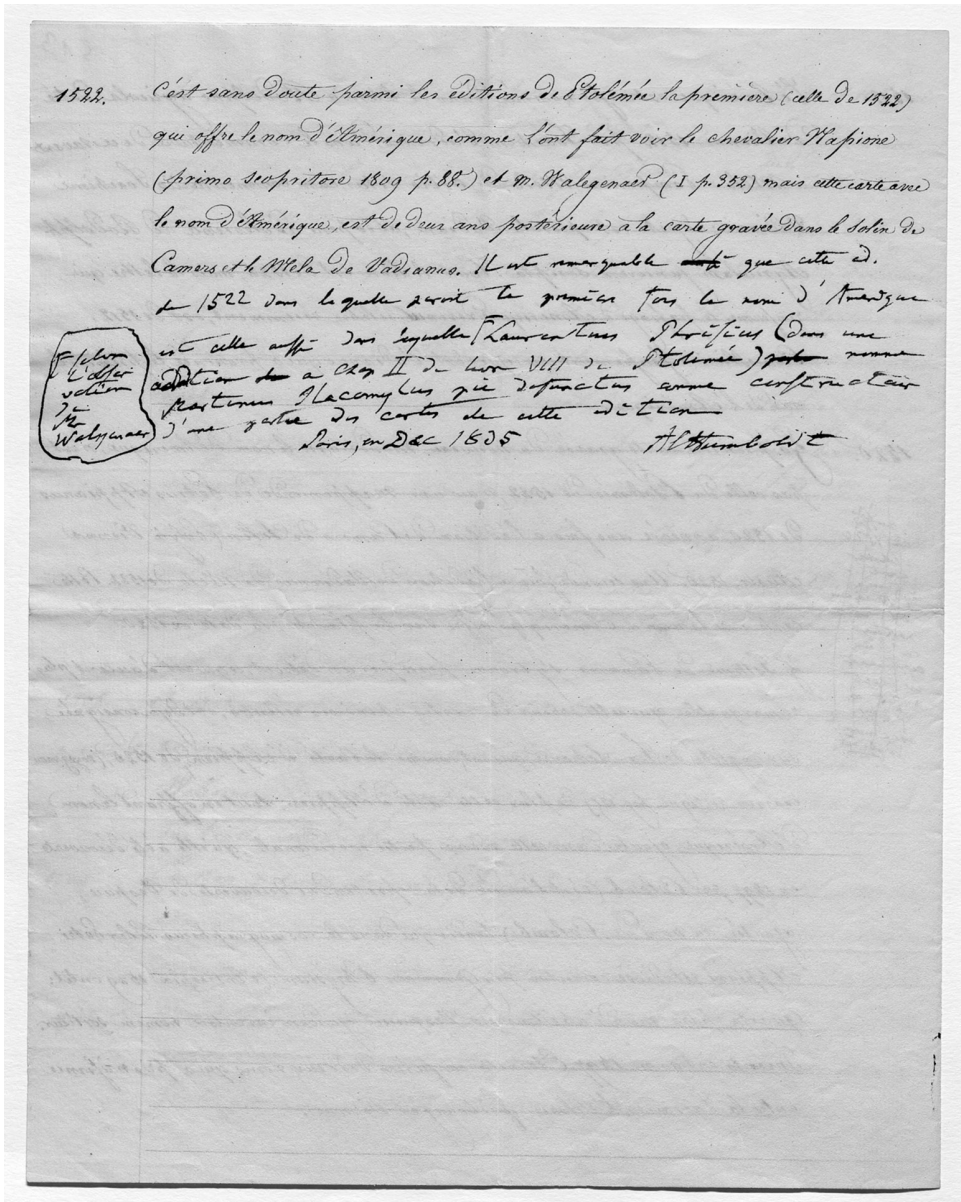 1522. C'est sans doute parmi les éditions de Ptolémée la première (celle de 1522)
qui offre le nom d'Amérique, comme l'ont fait voir le chevalier Napione
(primo scopritore 1809 p. 88.) et M. Walegenaer (I p. 352) mais cette carte avec
le nom d'Amérique, est de deux ans postérieure a la carte gravée dans le Solin de
Camers et le Mela de Vadianus. Il est remarquable que cette éd.
de 1522 dans laquelle paroit la première fois le nom d'Amerique
est celle aussi dans laquelle Laurentius Phrisius (dans une
addition a chap II du livre VIII de Ptolemée) nomme
Martinus Ilacomylus pie defunctus comme constructeur
d'une partie des cartes de cette edition
Paris, en Dec 1835 AlHumboldt
selon
l'obser
vation
de
Mr
Walckenaer